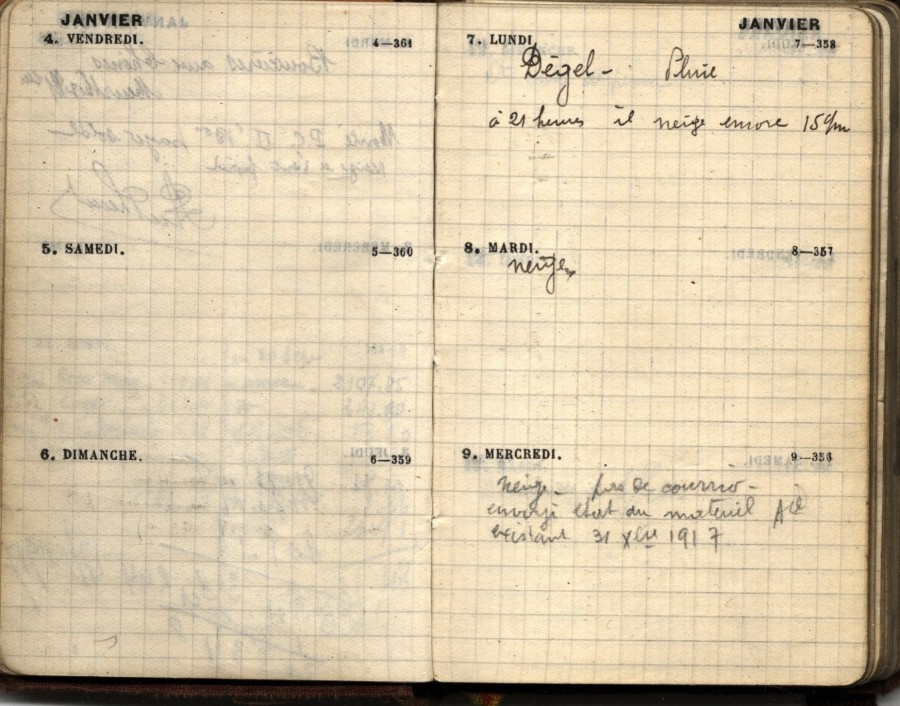 JANVIER
4. VENDREDI. 4—361
5. SAMEDI. 5—360
6. DIMANCHE. 6—359
JANVIER
7. LUNDI. 7—358
Dégel - Pluie
à 21 heures il neige encore 15 c/m
8. MARDI. 8—357
neige
9. MERCREDI. 9—356
neige - pas de courrier -
envoyé état du matériel
existant 31 Xbre 1917